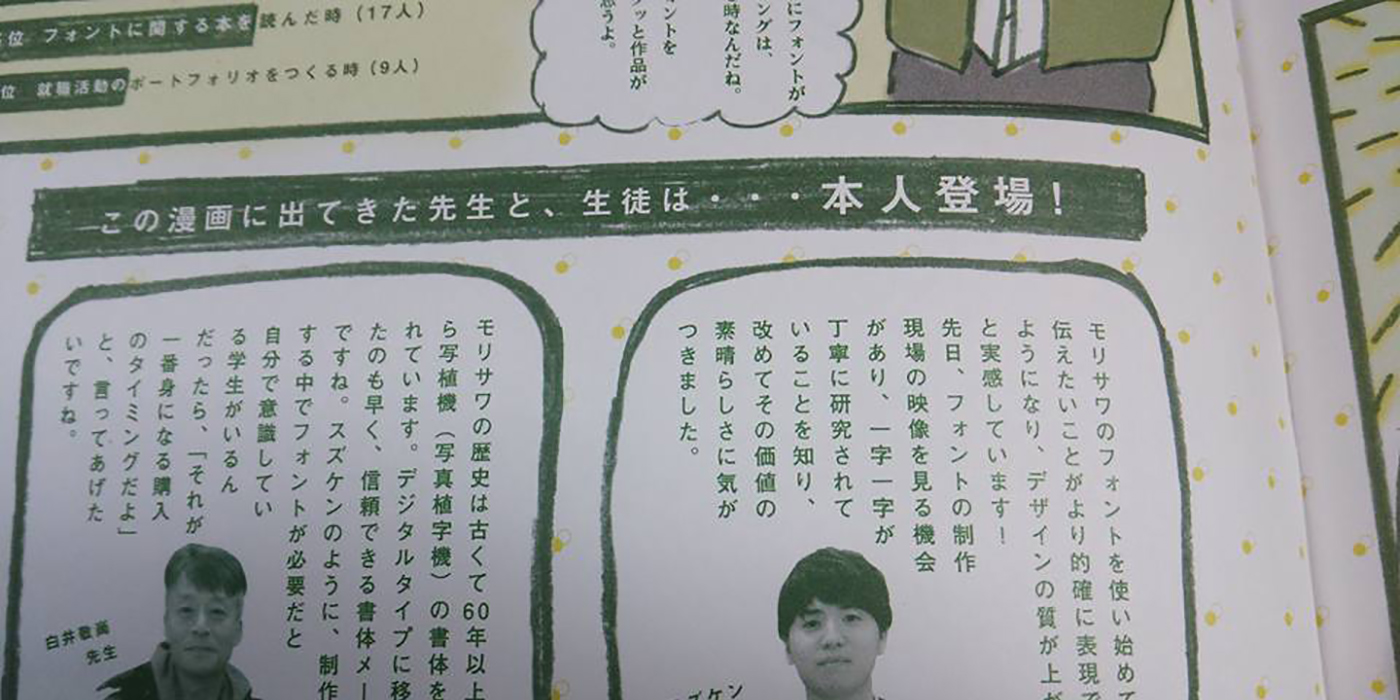 位 フォントに関する本を読んだ時(17人)
位 就職活動のポートフォリオをつくる時(9人)
にフォントが
時なんだね。
ングは、
ントを
ッと作品が
思うよ。
この漫画に出てきた先生と、生徒は・・・本人登場!
モリサワのフォントを使い始めて
伝えたいことがより的確に表現で
ようになり、デザインの質が上が
と実感しています!
先日、フォントの制作
現場の映像を見る機会
があり、一字一字が
丁寧に研究されて
いることを知り、
改めてその価値の
素晴らしさに気が
つきました。
ズケン
モリサワの歴史は古くて60年以上
ら写植機(写真植字機)の書体を
れています。デジタルタイプに移
たのも早く、信頼できる書体メー
ですね。スズケンのように、制作
する中でフォントが必要だと
自分で意識してい
る学生がいるん
だったら、「それが
一番身になる購入
のタイミングだよ」
と、言ってあげた
いですね。
白井敬尚
先生